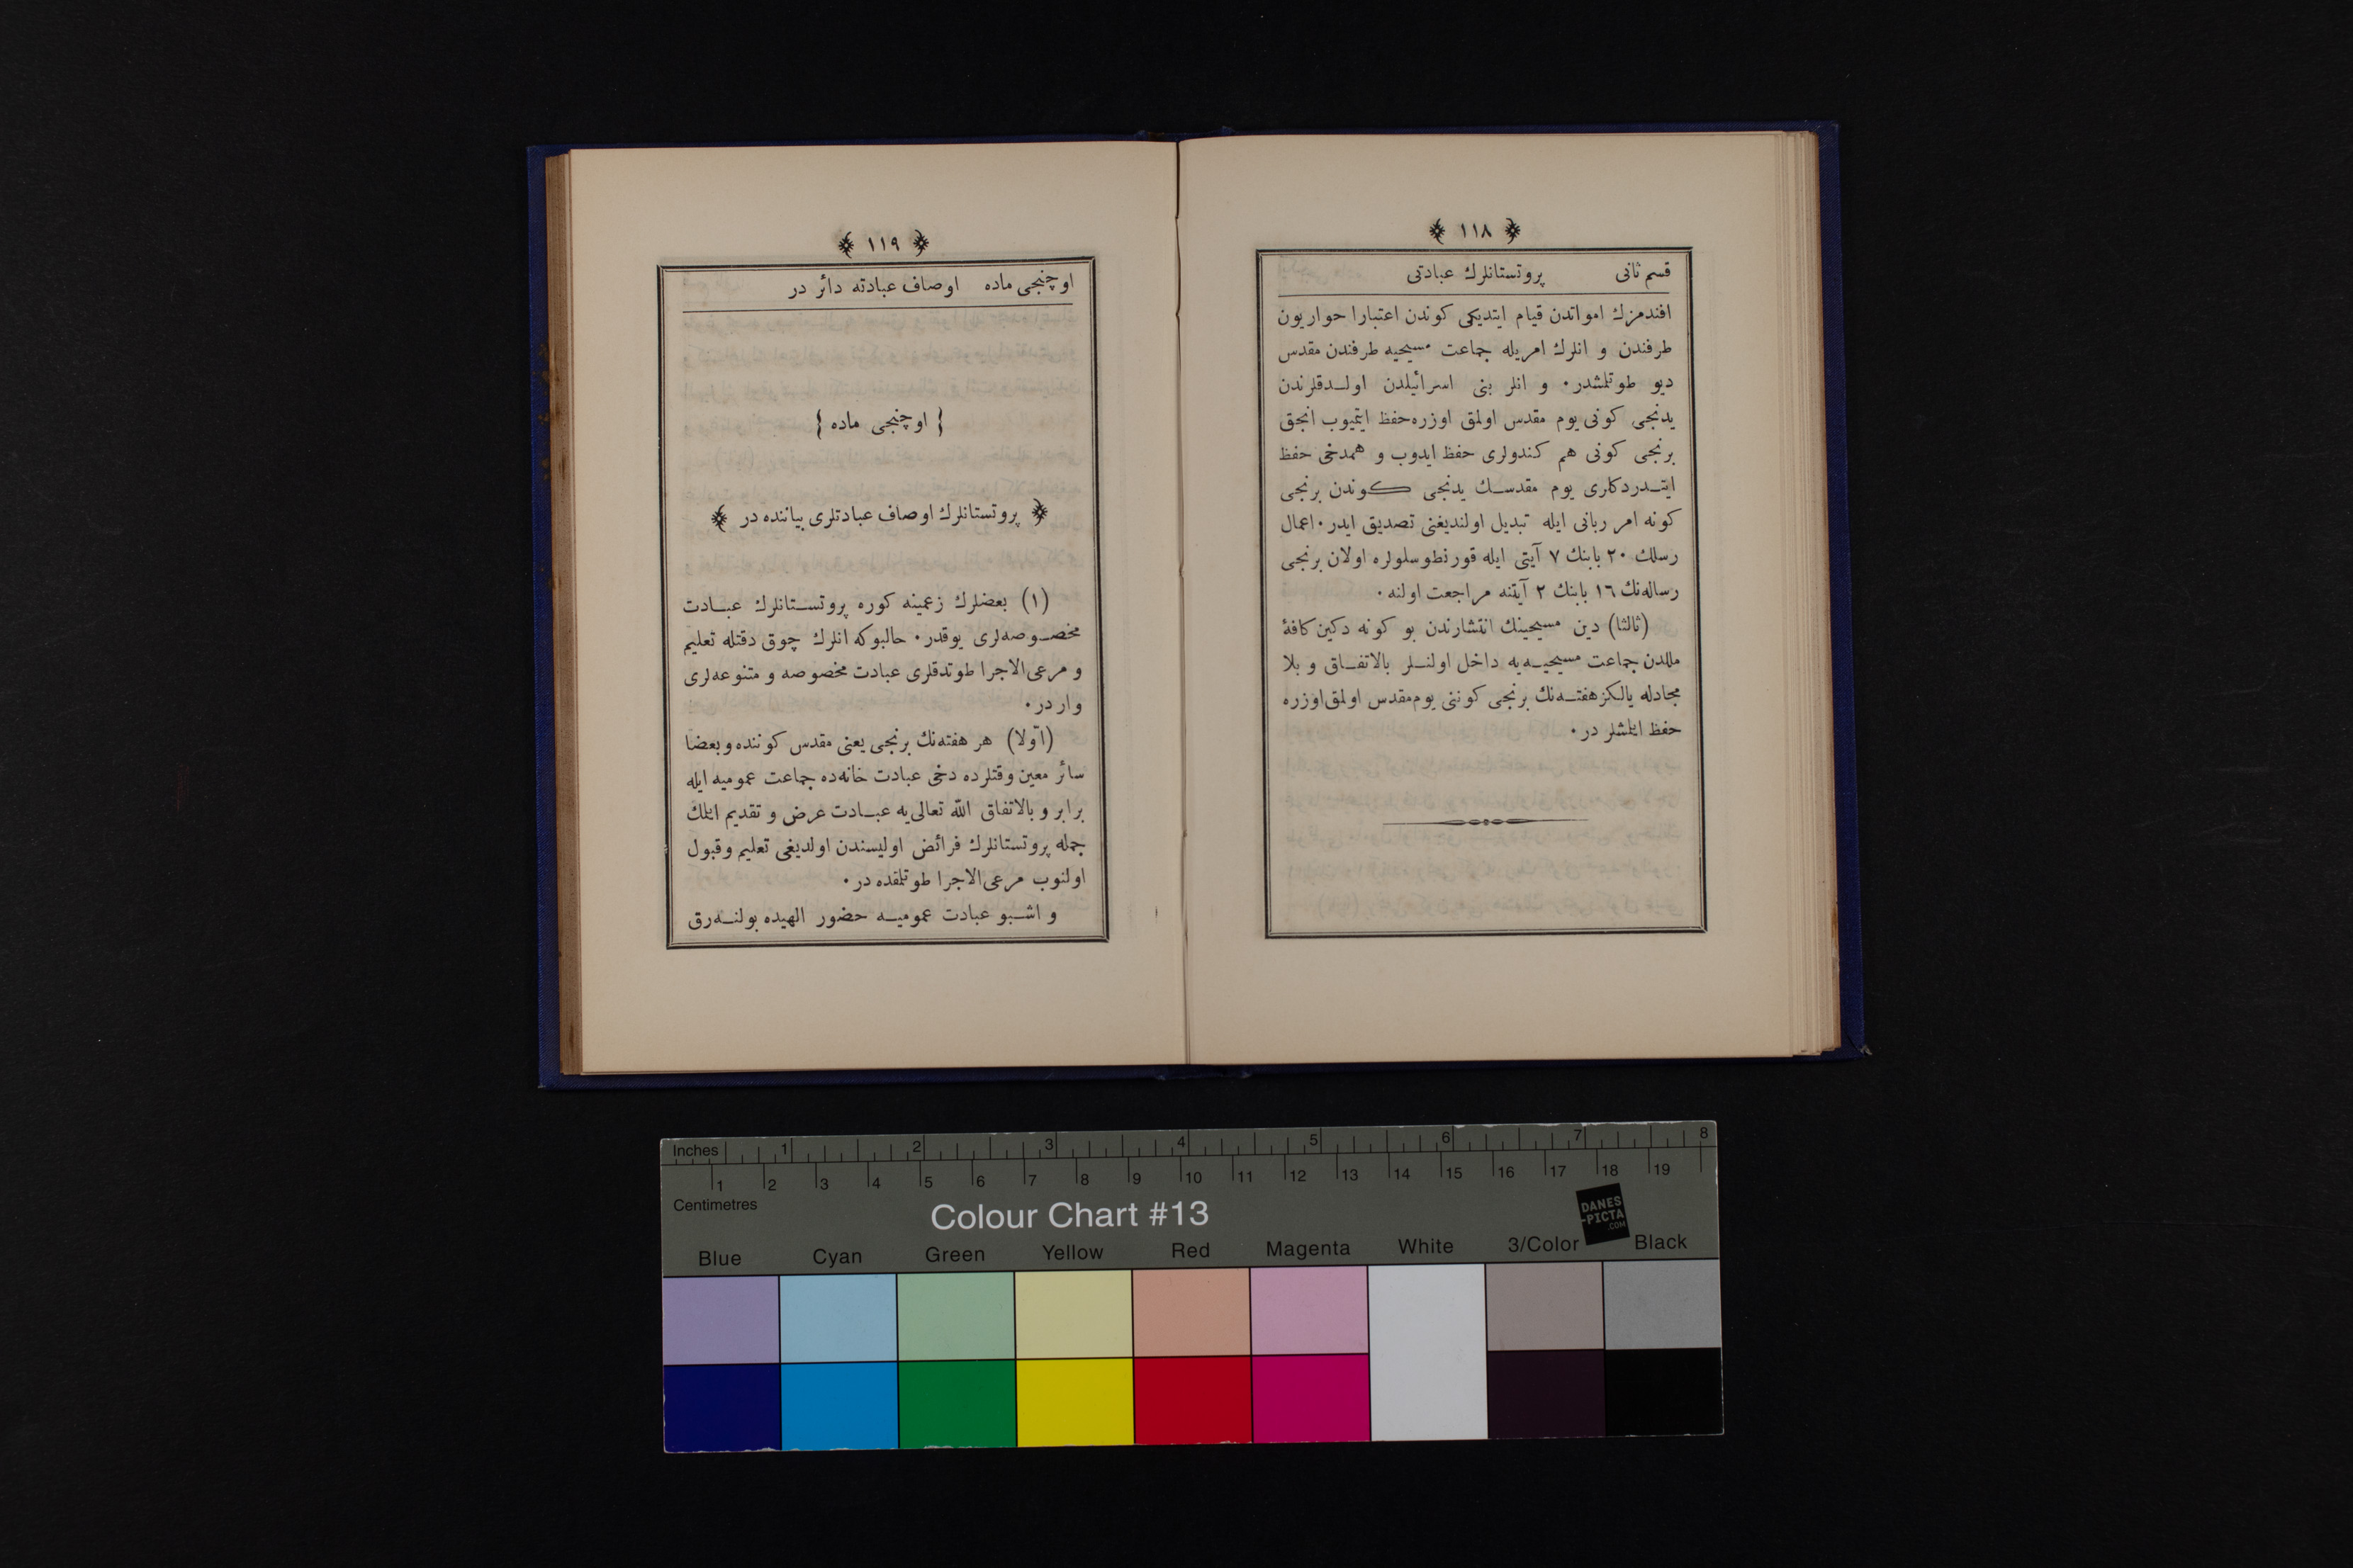 ١١٨
قسم ثانی پروتستانلرك عبادتی
افندمزك امواتدن قیام ایتدیکی کوندن اعتبارا حواریون
طرفندن و انلرك امریله جماعت مسیحیه طرفندن مقدس
دیو طوتلمشدر٠ و انلر بنی اسرائیلدن اولـدقلرندن
یدنجی کونی یوم مقدس اولمق اوزره حفظ ایتمیوب انجق
برنجی کونی هم کندولری حفظ ایدوب و همدخی حفظ
ایتـدردکلری یوم مقدسـك یدنجی کوندن برنجی
کونه امر ربانی ایله تبدیل اولندیغنی تصدیق ایدر٠ اعمال
رسلك ٢٠ بابنك ٧ آیتی ایله قورنطوسلولره اولان برنجی
رساله‌نك ١٦ بابنك ٢ آیتنه مراجعت اولنه٠
(ثالثا) دین مسیحینك انتشارندن بو کونه دکین کافهٔ
مللدن جماعت مسیحیـه‌یه داخل اولنـلر بالاتفـاق و بلا
مجادله یالکز هفتـه‌نك برنجی کوننی یوم مقدس اولمق اوزره
حفظ ایلمشلر در٠
١١٩
اوچنجی ماده اوصاف عبادته دائر در
{ اوچنجی ماده }
پروتستانلرك اوصاف عبادتلری بیاننده در
(١) بعضلرك زعمینه کوره پروتسـتانلرك عبـادت
مخصـوصه‌لری یوقدر٠ حالبوکه انلرك چوق دقتله تعلیم
و مرعی‌الاجرا طوتدقلری عبادت مخصوصه و متنوعه‌لری
وار در٠
(اوّلا) هر هفته‌نك برنجی یعنی مقدس کوننده و بعضا
سائر معین وقتلرده دخی عبادت خانه‌ده جماعت عمومیه ایله
برابر و بالاتفاق الله تعالی‌یه عبـادت عرض و تقدیم ایلمك
جمله پروتستانلرك فرائض اولیسندن اولدیغی تعلیم و قبول
اولنوب مرعی‌الاجرا طوتلمقده در٠
و اشـبو عبادت عمومیـه حضور الهیده بولنـه‌رق
Inches 1 2 3 4 5 6 7 8
1 2 3 4 5 6 7 8 9 10 11 12 13 14 15 16 17 18 19
Centimetres
Colour Chart #13
DANES
-PICTA
.COM
Blue Cyan Green Yellow Red Magenta White 3/Color Black